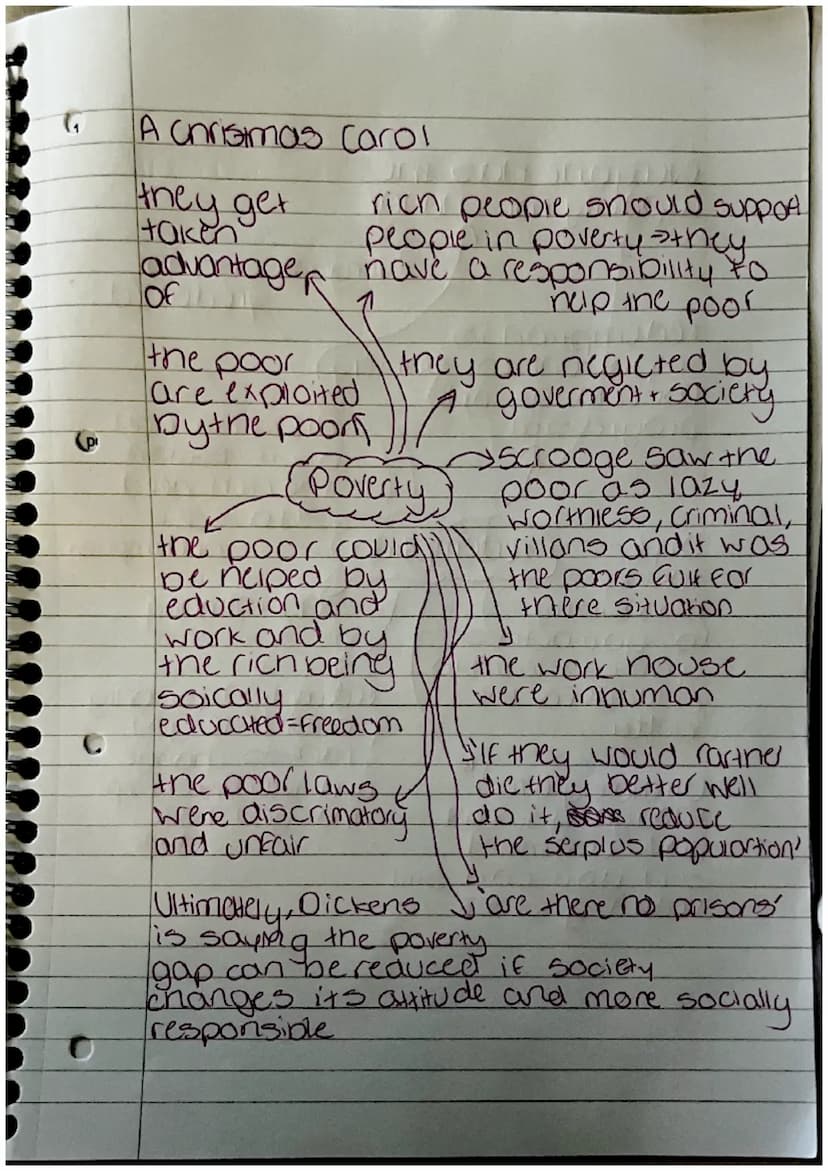 A Chrismas Carol
they get
taken
advantage
of
rich people should support
people in poverty → they
have a responsibility to
help the poor
the poor
are exploited
by the poor
they are neglcted by
goverment + society
Poverty
scrooge saw the
poor as lazy,
worthless, criminal,
villans and it was
the poors fult for
there situation
the poor could
be helped by
eduction and
work and by
the rich being
soically
educcated = freedom
the work house
were inhuman
'If they would rarther
die they better well
do it, reduce
the serplus population'
the poor laws
were discrimatory
and unfair
'are there no prisons'
Ultimately, Dickens
is saying the poverty
gap can be reduced if society
changes its attitude and more socially
responsible